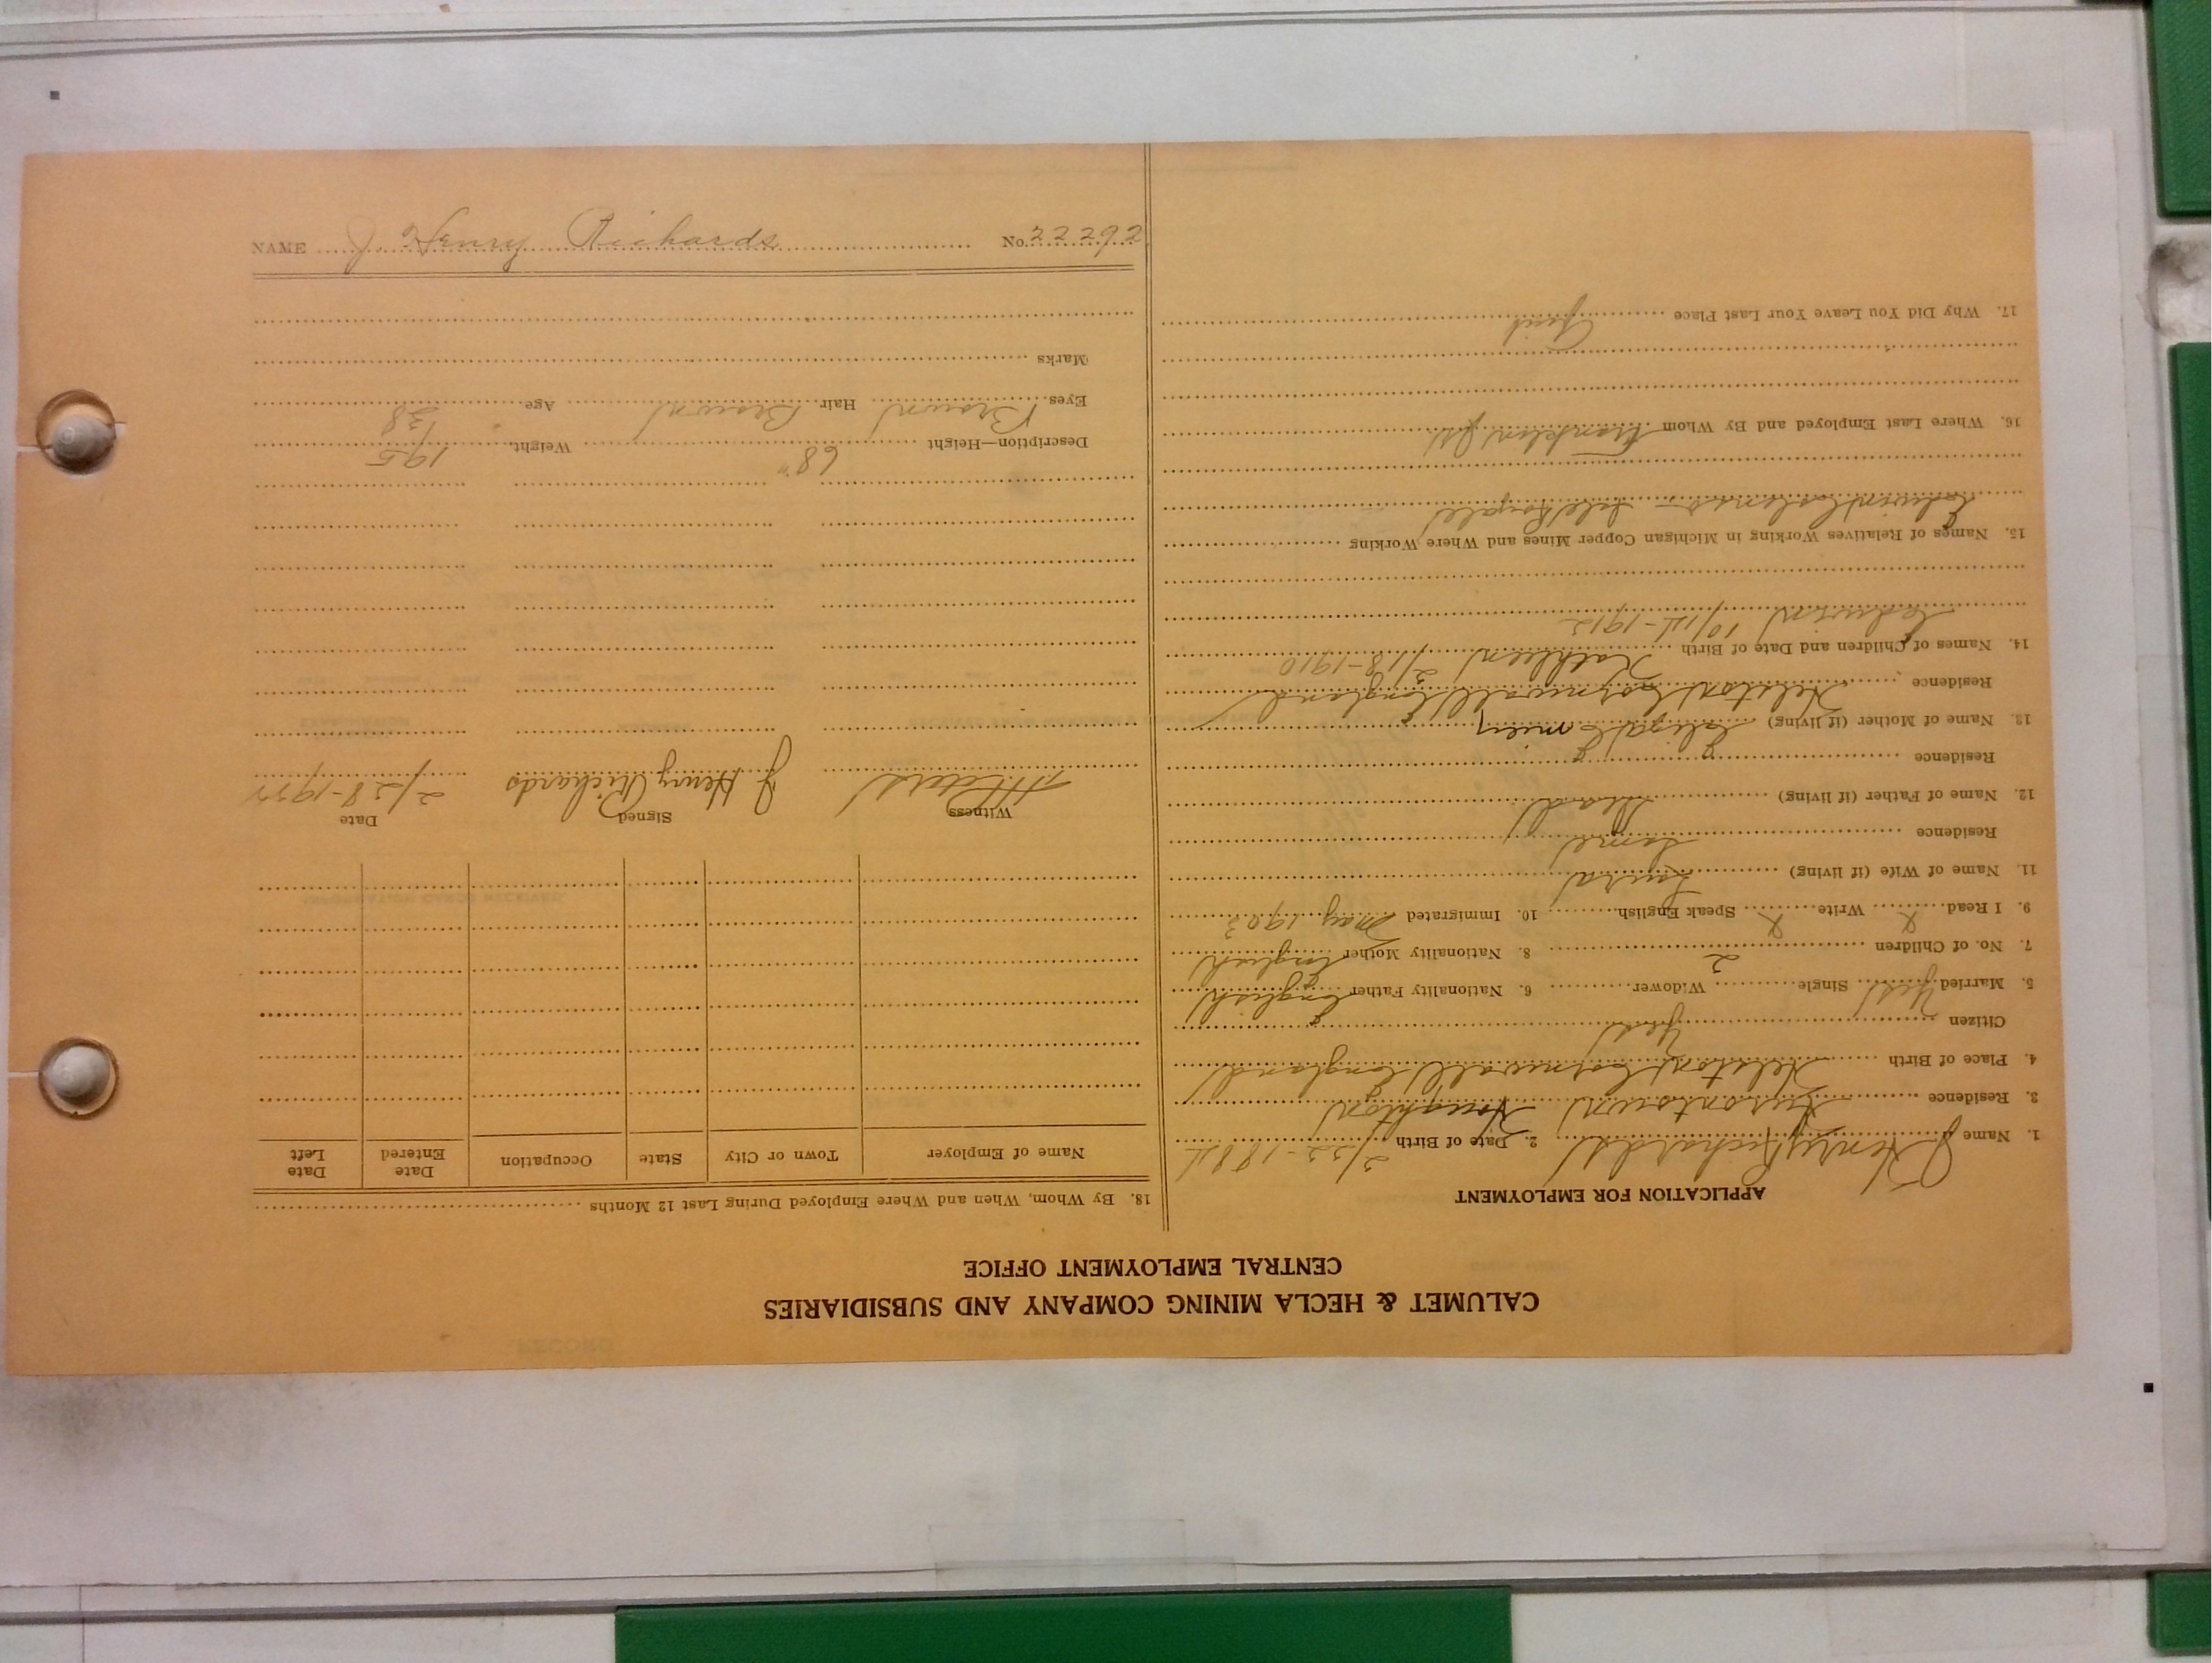 CALUMET & HECLA MINING COMPANY AND SUBSIDIARIES
CENTRAL EMPLOYMENT OFFICE
APPLICATION FOR EMPLOYMENT
1. Name J Henry Richards 2. Date of Birth 2/22-1884
3. Residence Hurontown Houghton
4. Place of Birth Helston Cornwall England
Citizen Yes
5. Married Yes Single Widower 6. Nationality Father English
7. No. of Children 2 8. Nationality Mother English
9. I Read X Write X Speak English 10. Immigrated May 1903
11. Name of Wife (if living) Laura
Residence Same
12. Name of Father (if living) Dead
Residence
13. Name of Mother (if living) Eliza
Residence Helston Cornwall England
14. Names of Children and Date of Birth Kathleen 2/18-1910
Edwin 10/14-1912
15. Names of Relatives Working in Michigan Copper Mines and Where Working
Edwin Isle Royale
16. Where Last Employed and By Whom Franklin Jr
17. Why Did You Leave Your Last Place Quit
18. By Whom, When and Where Employed During Last 12 Months
Name of Employer Town or City State Occupation Date Entered Date Left
Witness Signed Date
J Henry Richards 2/28-1922
Description—Height 68" Weight 195
Eyes Brown Hair Brown Age 38
Marks
NAME J. Henry Richards No. 22292